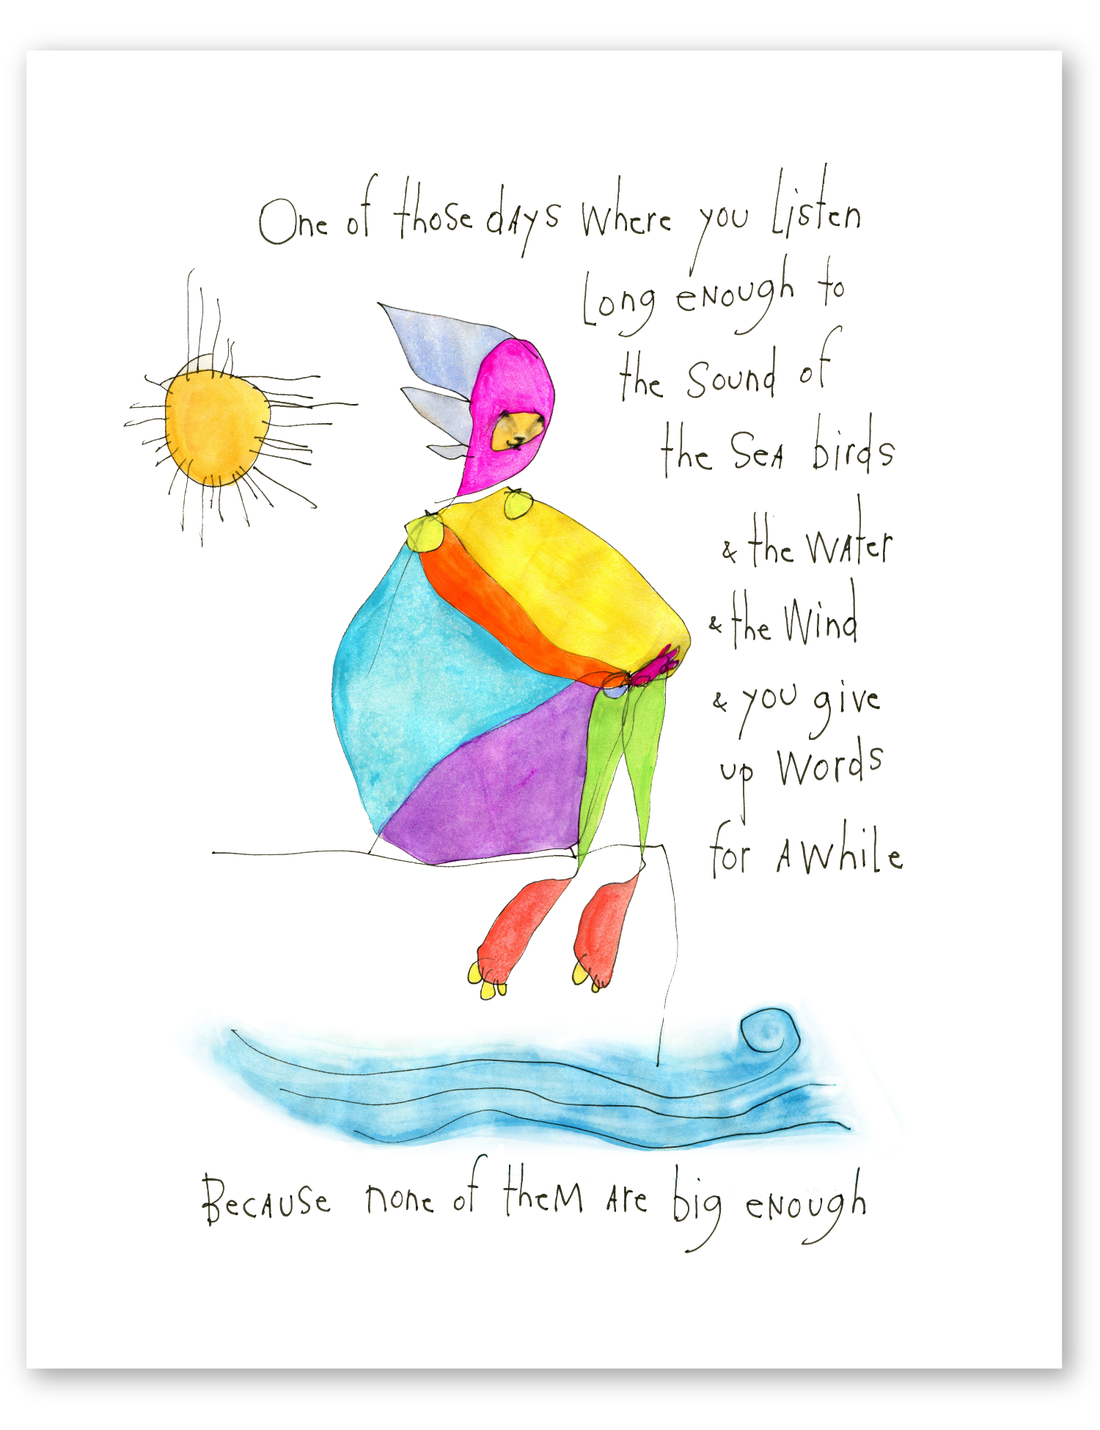 One of those days where you listen
long enough to
the sound of
the sea birds
& the water
& the wind
& you give
up words
for awhile
Because none of them are big enough